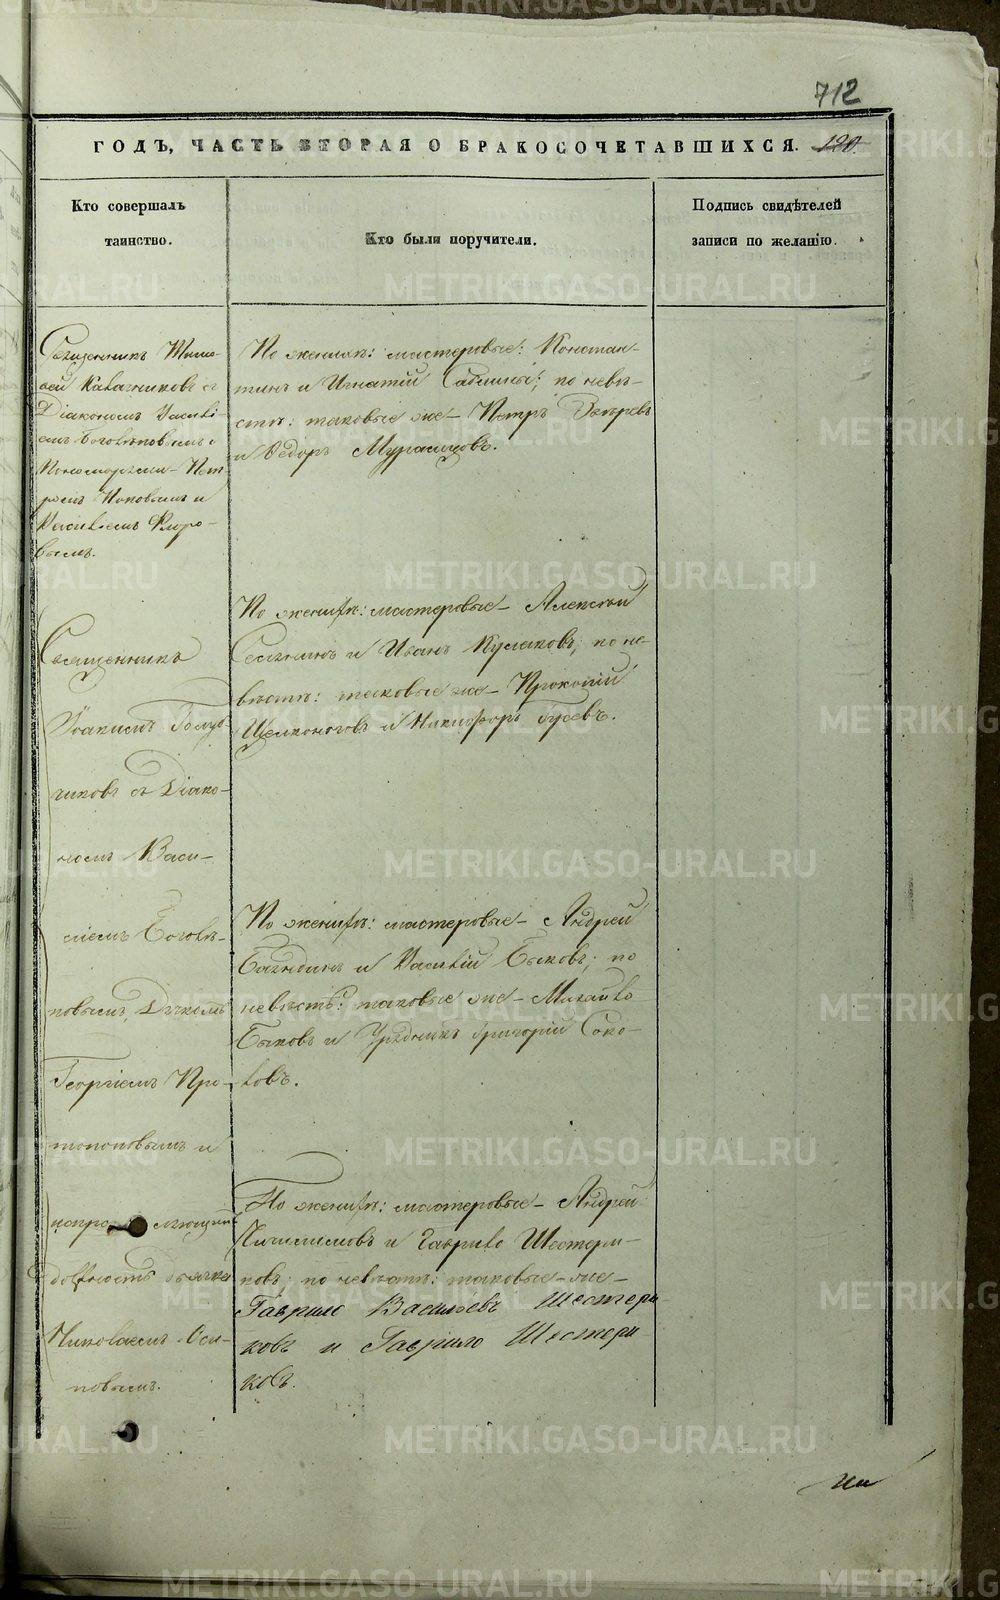 712
ГОДЪ, ЧАСТЬ ВТОРАЯ О БРАКОСОЧЕТАВШИХСЯ. 120
Кто совершалъ
таинство.
Кто были поручители.
Подпись свидѣтелей
записи по желанію.
Священникъ Тимо-
ѳей съ
Діакономъ Василі-
емъ Боговѣповымъ и
Пономарями Пет-
ромъ Поповымъ и
Василіемъ Флоро-
вымъ.
По женихѣ: мастеровые: Констан-
тинъ и Игнатій по невѣ-
стѣ: таковые же Петръ Звѣревъ
и Ѳедоръ
Священникъ
Іоакимъ Голуб-
чиковъ съ Діако-
номъ Васи-
ліемъ Боговѣ-
повымъ, Дьячкомъ
Георгіемъ Про-
топоповымъ и
должность дьячка
Николаемъ Оси-
повымъ.
По женихѣ: мастеровые Алексѣй
и Иванъ Кулаковъ; по не-
вѣстѣ: таковые же Прокопій
Щелконоговъ и Никифоръ Гусевъ.
По женихѣ: мастеровые Андрей
и Василій Быковъ; по
невѣстѣ: таковые же Михайло
Быковъ и Урядникъ Григорій Соко-
ловъ.
По женихѣ: мастеровые Андрей
и Гаврило Шестери-
ковъ; по невѣстѣ: таковые же
Гаврило Васильевъ Шестери
ковъ и Гаврило Шестери-
ковъ.
METRIKI.GASO-URAL.RU